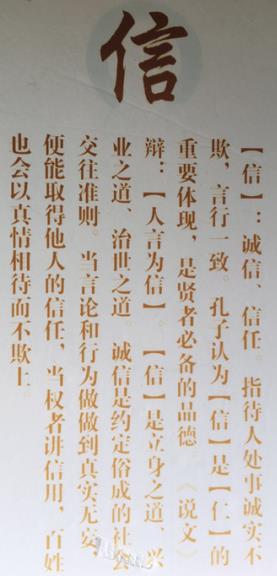 信
【信】：诚信、信任。指待人处事诚实不
欺，言行一致。孔子认为【信】是【仁】的
重要体现，是贤者必备的品德。《说文》
辩：【人言为信】。【信】是立身之道、兴
业之道、治世之道。诚信是约定俗成的社会
交往准则。当言论和行为做做到真实无妄，
便能取得他人的信任，当权者讲信用，百姓
也会以真情相待而不欺上。